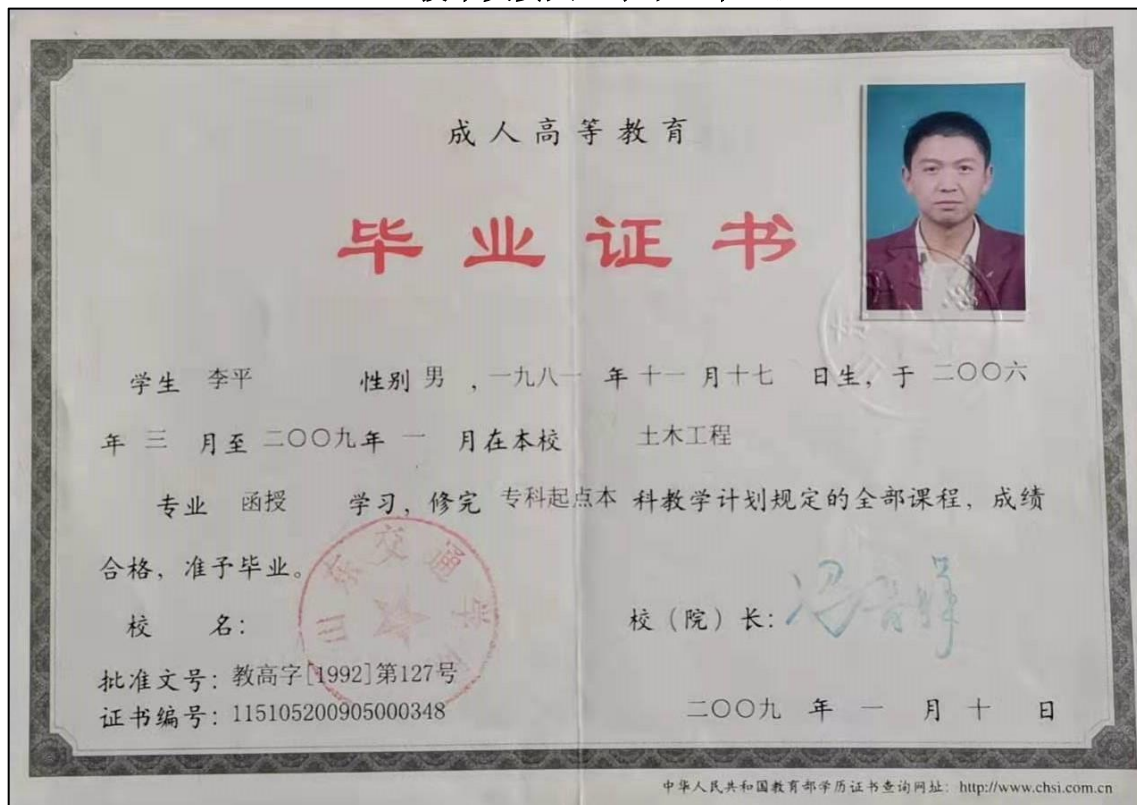 成人高等教育
毕业证书
学生 李平 性别 男 ，一九八一 年 十一 月 十七 日生，于 二〇〇六
年 三 月至 二〇〇九 年 一 月在本校 土木工程
专业 函授 学习，修完 专科起点本 科教学计划规定的全部课程，成绩
合格，准予毕业。
山东交通学院
校 名：
校（院）长：
批准文号：教高字[1992]第127号
证书编号：115105200905000348
二〇〇九 年 一 月 十 日
中华人民共和国教育部学历证书查询网址：http://www.chsi.com.cn